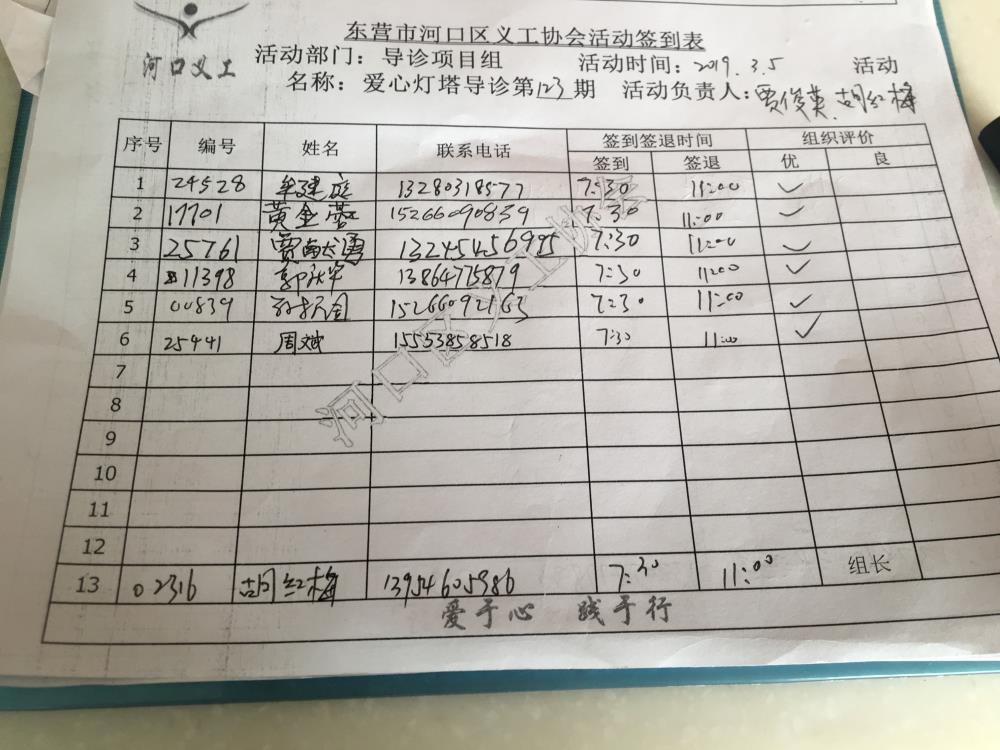 河口义工
东营市河口区义工协会活动签到表
活动部门：导诊项目组 活动时间：2019.3.5 活动
名称：爱心灯塔导诊第123期 活动负责人：贾俊英 胡红梅
序号 编号 姓名 联系电话 签到签退时间 组织评价
签到 签退 优 良
1 24528 13280318577 7:30 11:00 ✓
2 17701 黄金蓉 15266090839 7:30 11:00 ✓
3 25761 贾献勇 13245456995 7:30 11:00 ✓
4 11398 郭秋军 13864775879 7:30 11:00 ✓
5 00839 15266092163 7:30 11:00 ✓
6 25441 周斌 15553858518 7:30 11:00 ✓
7
8
9
10
11
12
13 02316 胡红梅 13954605986 7:30 11:00 组长
爱于心 践于行
河口区义工协会